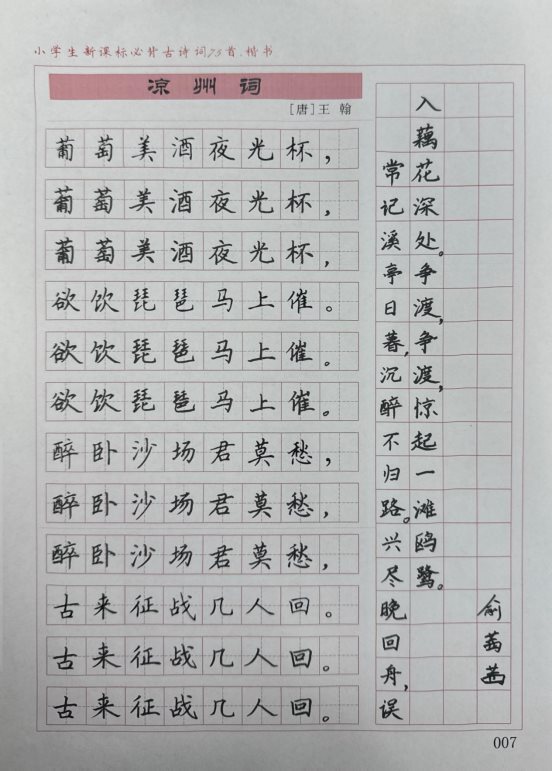 小学生新课标必背古诗词75首.楷书
凉州词
[唐]王 翰
葡萄美酒夜光杯,
葡萄美酒夜光杯,
葡萄美酒夜光杯,
欲饮琵琶马上催。
欲饮琵琶马上催。
欲饮琵琶马上催。
醉卧沙场君莫愁,
醉卧沙场君莫愁,
醉卧沙场君莫愁,
古来征战几人回。
古来征战几人回。
古来征战几人回。
常记溪亭日暮,沉醉不归路。兴尽晚回舟,误
入藕花深处。争渡,争渡,惊起一滩鸥鹭。
俞
007